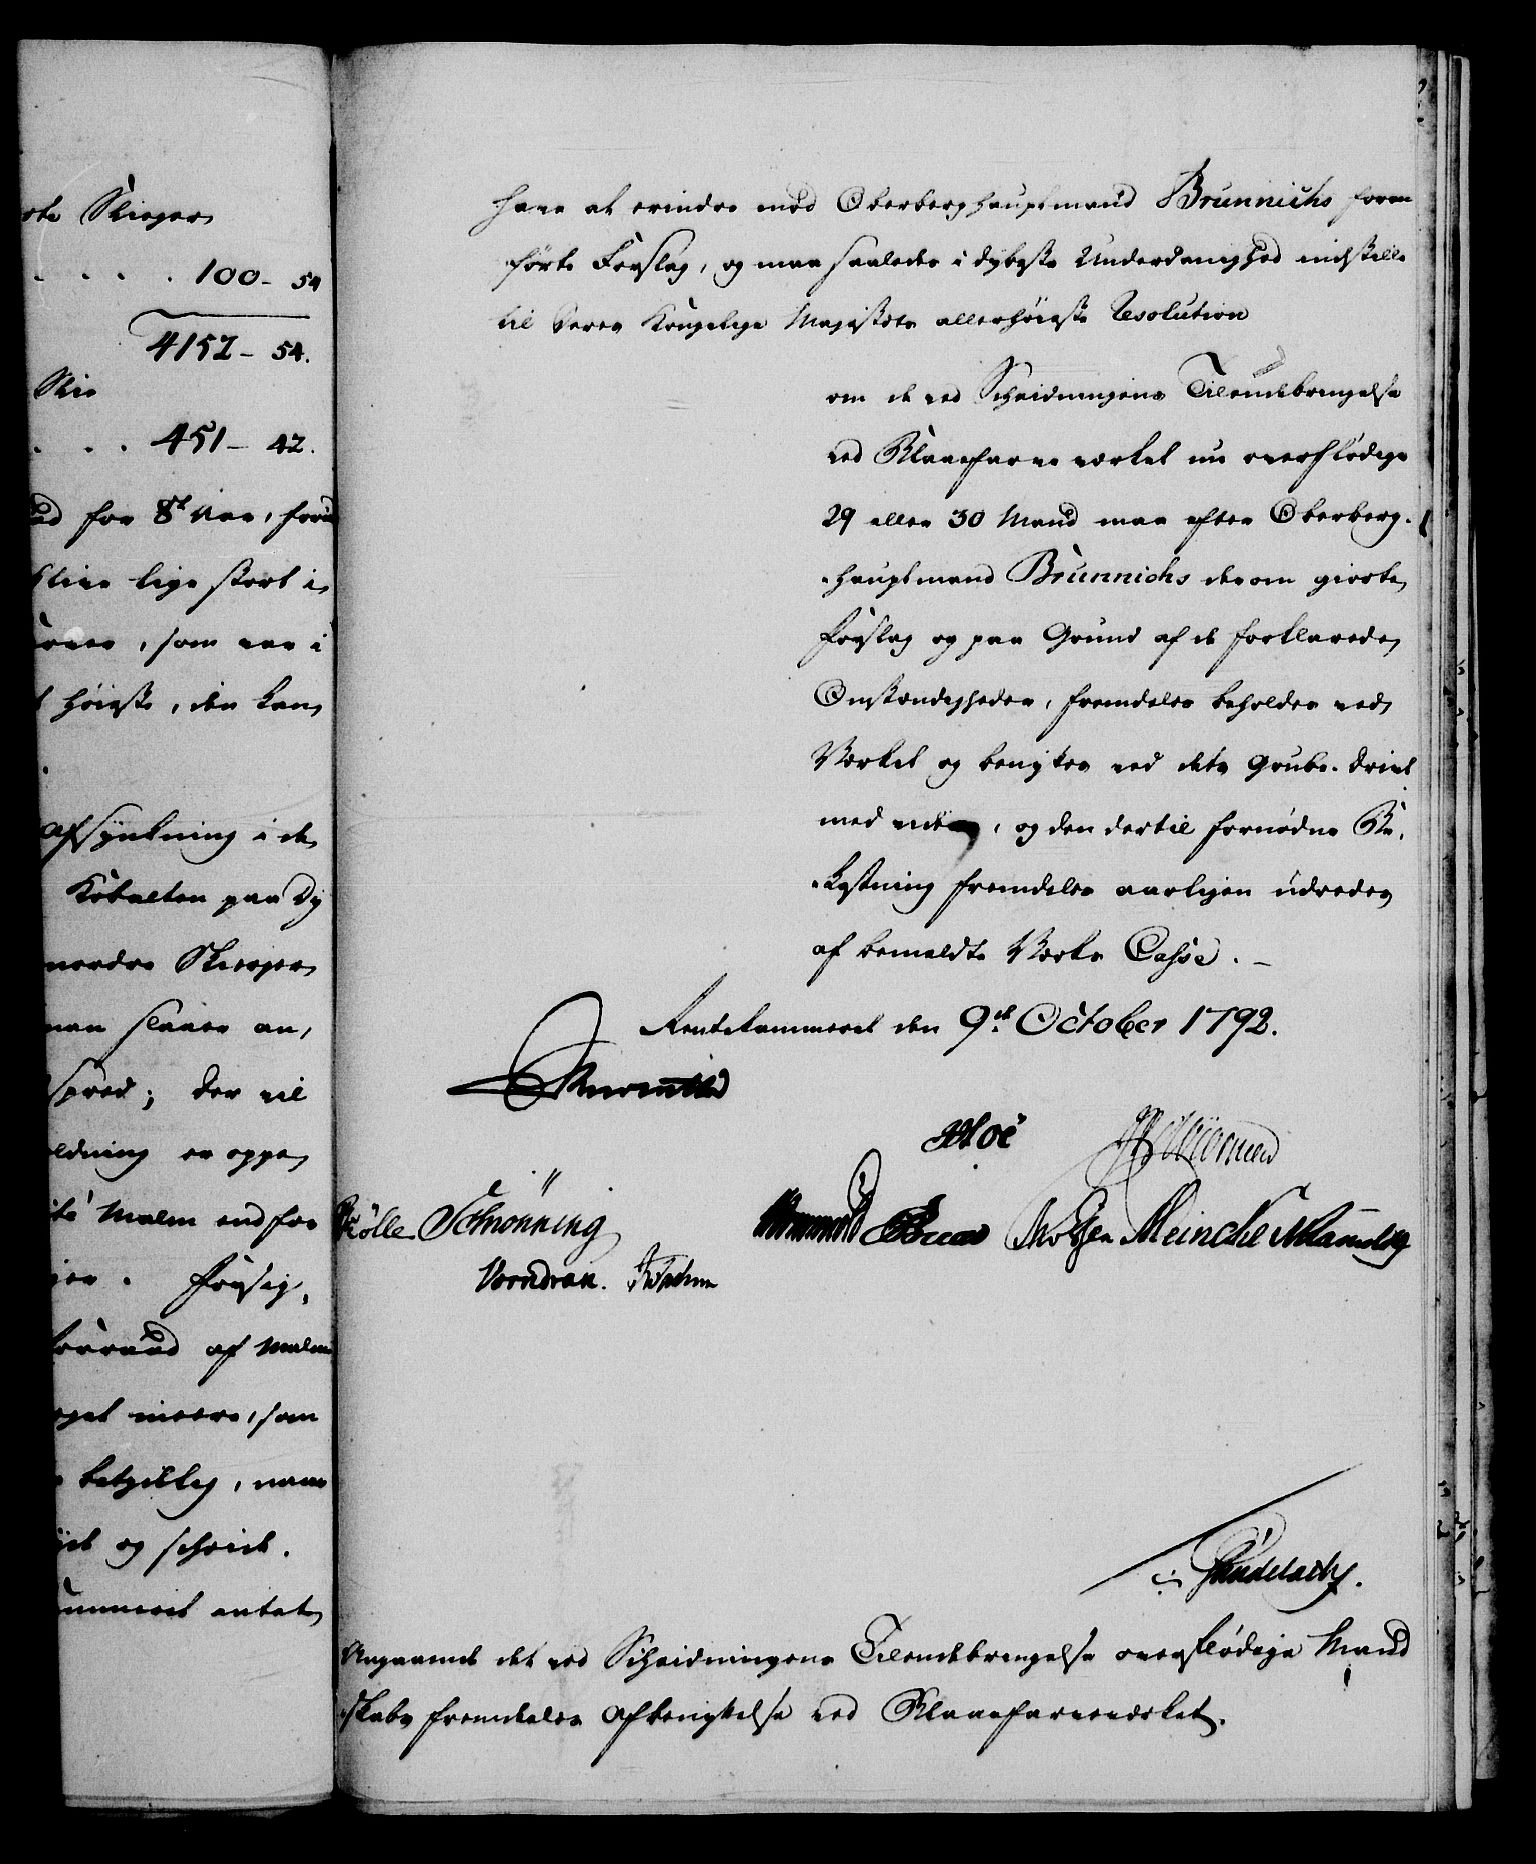 ste Skierper
. . . . 100 - 54
4152 - 54.
Skie
. . . 451 - 42.
for 8te Aar, forud
blive lige stort i
som var i
høieste, der kan
Afsynkning i de
Kobolten paa Dy
nordre Skierper
man slaaer an,
der vil
ldning er oppe
Malm end for
Forsig,
orraad af Malm
oget meere, som
og scheidt.
ammeret antat
have at erindre mod Oberberghauptmand Brünnichs foran
førte Forslag, og maa saaledes i dybeste Underdanighed indstille
til Deres Kongelige Majestæts allerhøieste Resolution
om de ved Scheidningens Tilendebringelse
ved Blaafarve værket nu overflødige
29 eller 30 Mand maa efter Oberberg-
hauptmand Brünnichs derom giorte
Forslag og paa Grund af de forklarede
Omstændigheder, fremdeles beholdes ved
Værket og benyttes ved dets Grube-Drivt
med videre, og den dertil fornødne Be-
kostning fremdeles aarligen udredes
af bemeldte Værks Casse. -
Rentekammeret den 9de October 1792.
Schønning Meincke
Vorndran.
Angaaende det ved Scheidningens Tilendebringelse overflødige Mand
skabs fremdeles Afbenyttelse ved Blaafarveværket.